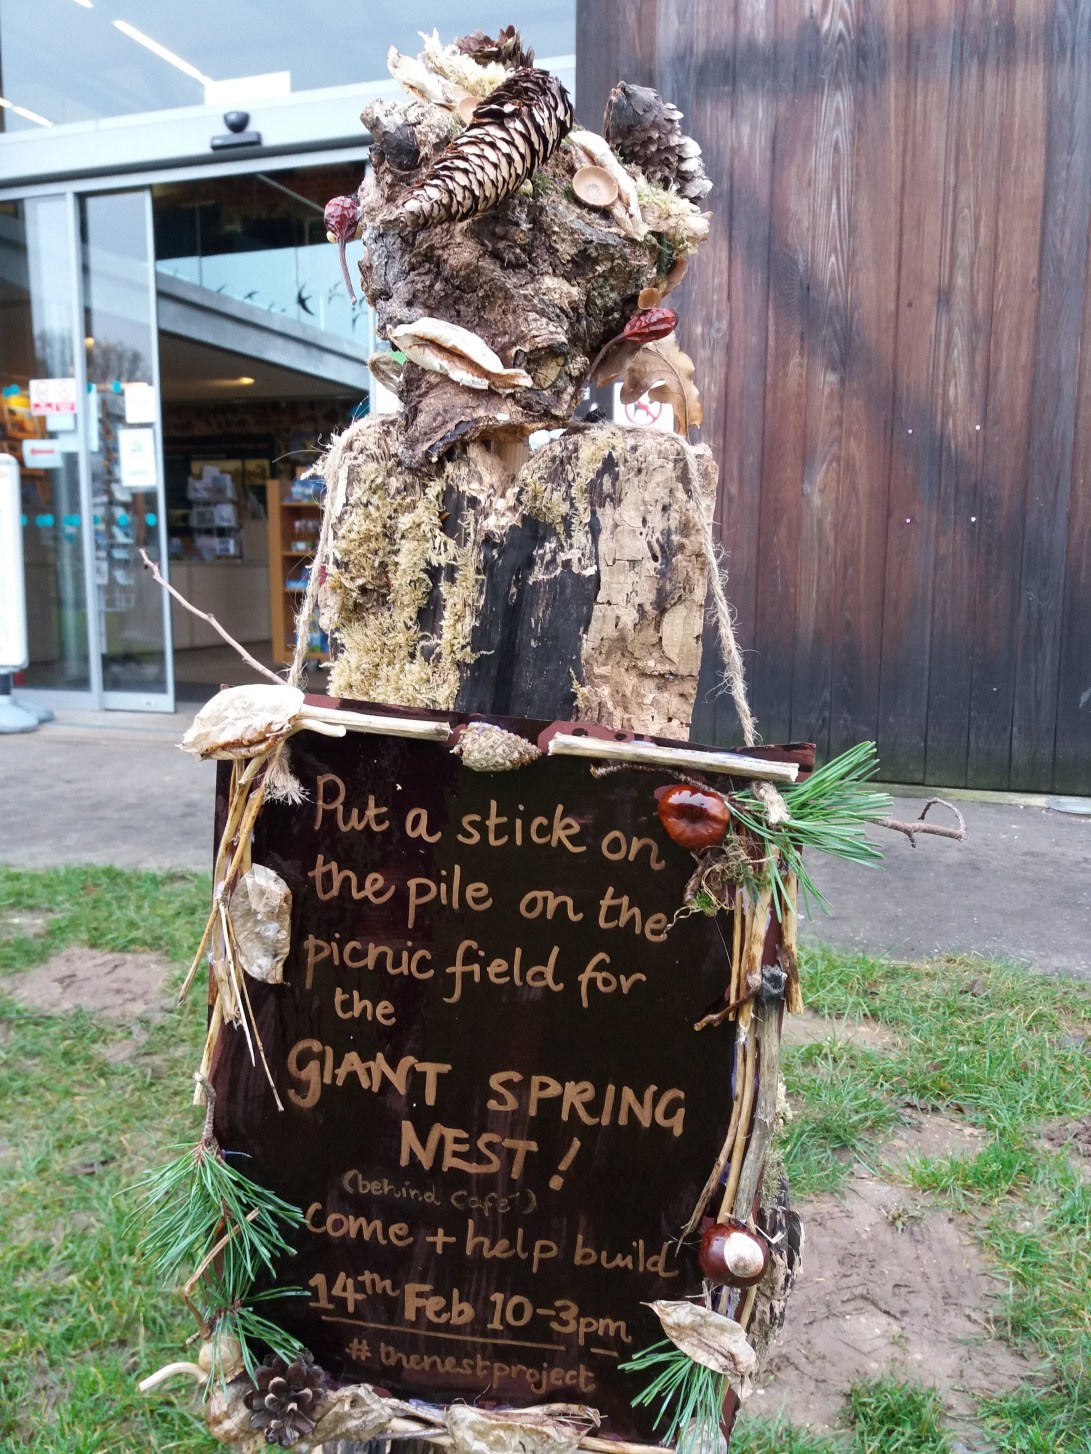 Put a stick on
the pile on the
picnic field for
the
GIANT SPRING
NEST!
(behind Café)
come + help build
14th Feb 10-3pm
#thenestproject